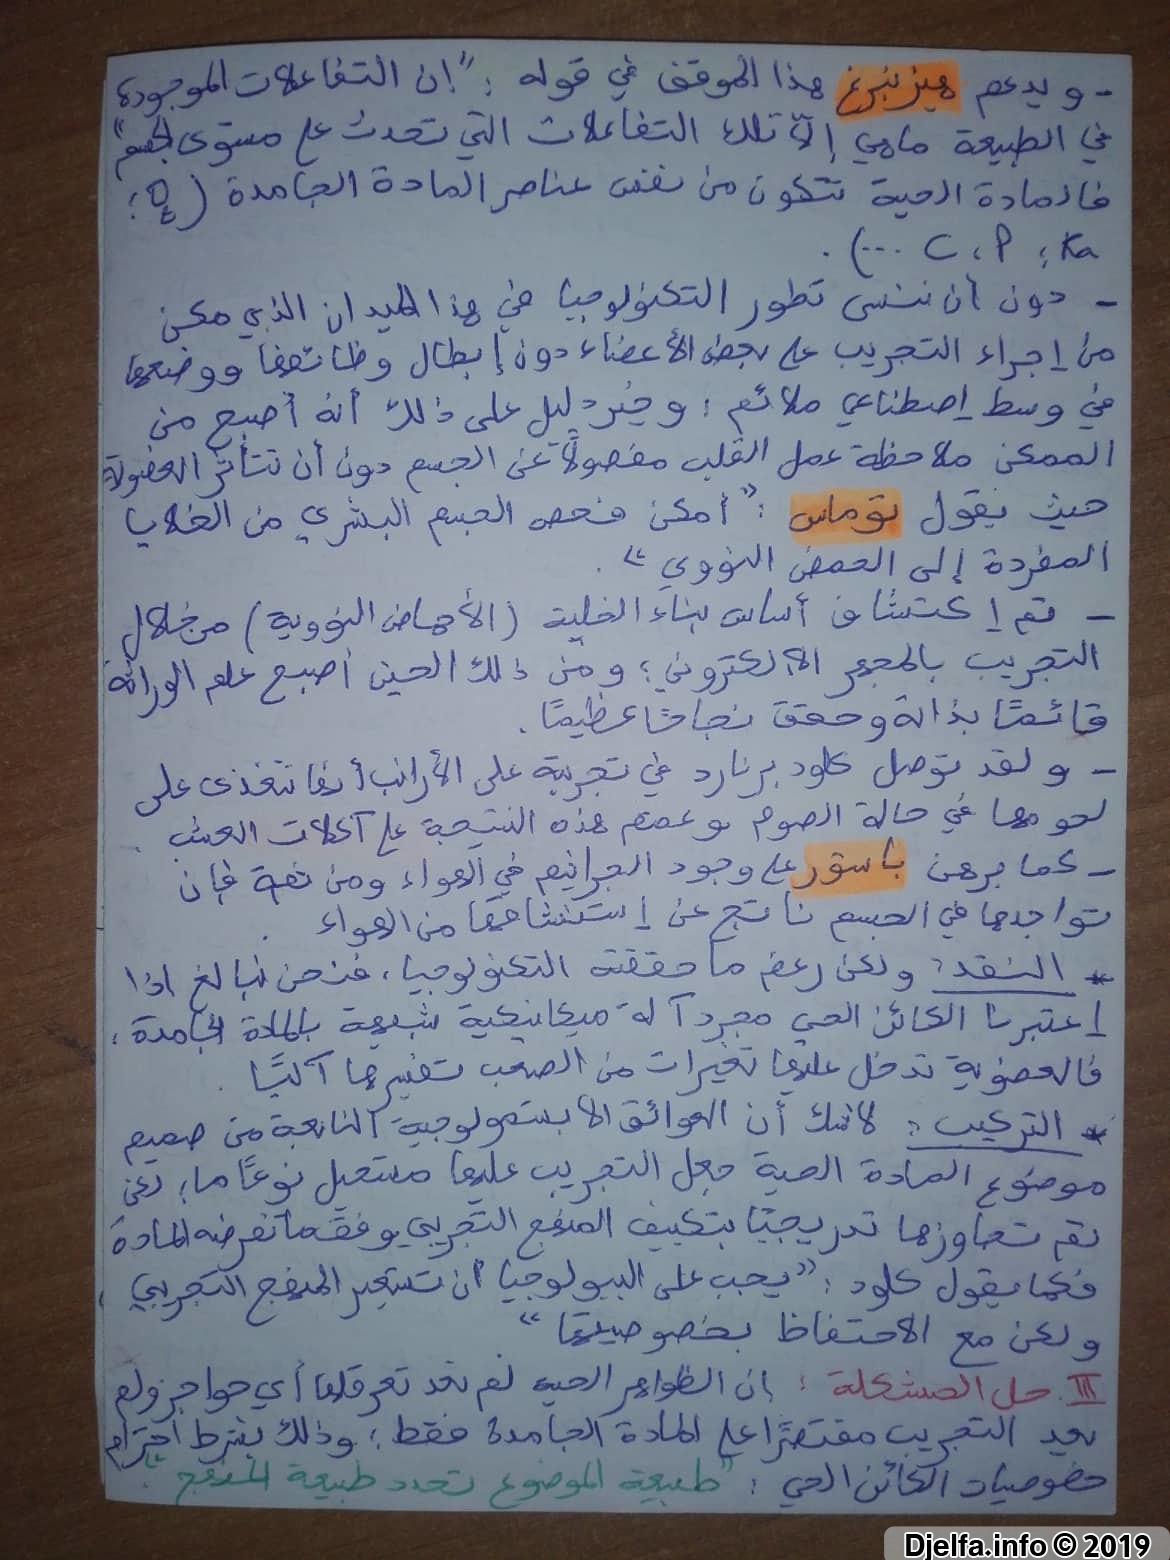 - و يدعم هيزنبرغ هذا الموقف في قوله : "إن التفاعلات الموجودة
في الطبيعة ماهي إلا تلك التفاعلات التي تحدث على مستوى الجسم"
فالمادة الحية تتكون من نفس عناصر المادة الجامدة (O₂ ؛
Ka ؛ P ، C ...) .
- دون أن ننسى تطور التكنولوجيا في هذا الميدان الذي مكن
من إجراء التجريب على بعض الأعضاء دون إبطال وظائفها ووضعها
في وسط إصطناعي ملائم ؛ وخير دليل على ذلك أنه أصبح من
الممكن ملاحظة عمل القلب مفصولاً عن الجسم دون أن تتأثر العضوية
حيث يقول توماس : "أمكن فحص الجسم البشري من الخلايا
المفردة إلى الحمض النووي" .
- تم إكتشاف أساس بناء الخلية (الأحماض النووية) من خلال
التجريب بالمجهر الالكتروني ؛ ومن ذلك الحين أصبح علم الوراثة
قائمًا بذاته وحقق نجاحا عظيمًا .
- و لقد توصل كلود برنارد في تجربة على الأرانب أنها تتغذى على
لحومها في حالة الصوم وعمم هذه النتيجة على آكلات العشب .
- كما برهن باستور على وجود الجراثيم في الهواء ومن ثمة فإن
تواجدها في الجسم ناتج عن إستنشاقها من الهواء .
* النقد : ولكن رغم ما حققته التكنولوجيا ، فنحن نبالغ اذا
إعتبرنا الكائن الحي مجرد آلة ميكانيكية شبيهة بالمادة الجامدة ؛
فالعضوية تدخل عليها تغيرات من الصعب تفسيرها آليًا .
* التركيب : لاشك أن العوائق الابستمولوجية النابعة من صميم
موضوع المادة الحية جعل التجريب عليها مستحيل نوعًا ما ؛ لكن
تم تجاوزها تدريجيًا بتكييف المنهج التجريبي وفق ما تفرضه المادة
فكما يقول كلود : "يجب على البيولوجيا أن تستعير المنهج التجريبي
ولكن مع الاحتفاظ بخصوصيتها"
III حل المشكلة : إن الظواهر الحية لم تعد تعرقلها أي حواجز ولم
يعد التجريب مقتصرًا على المادة الجامدة فقط ؛ وذلك بشرط احترام
خصوصيات الكائن الحي : "طبيعة الموضوع تحدد طبيعة المنهج" .
Djelfa.info © 2019